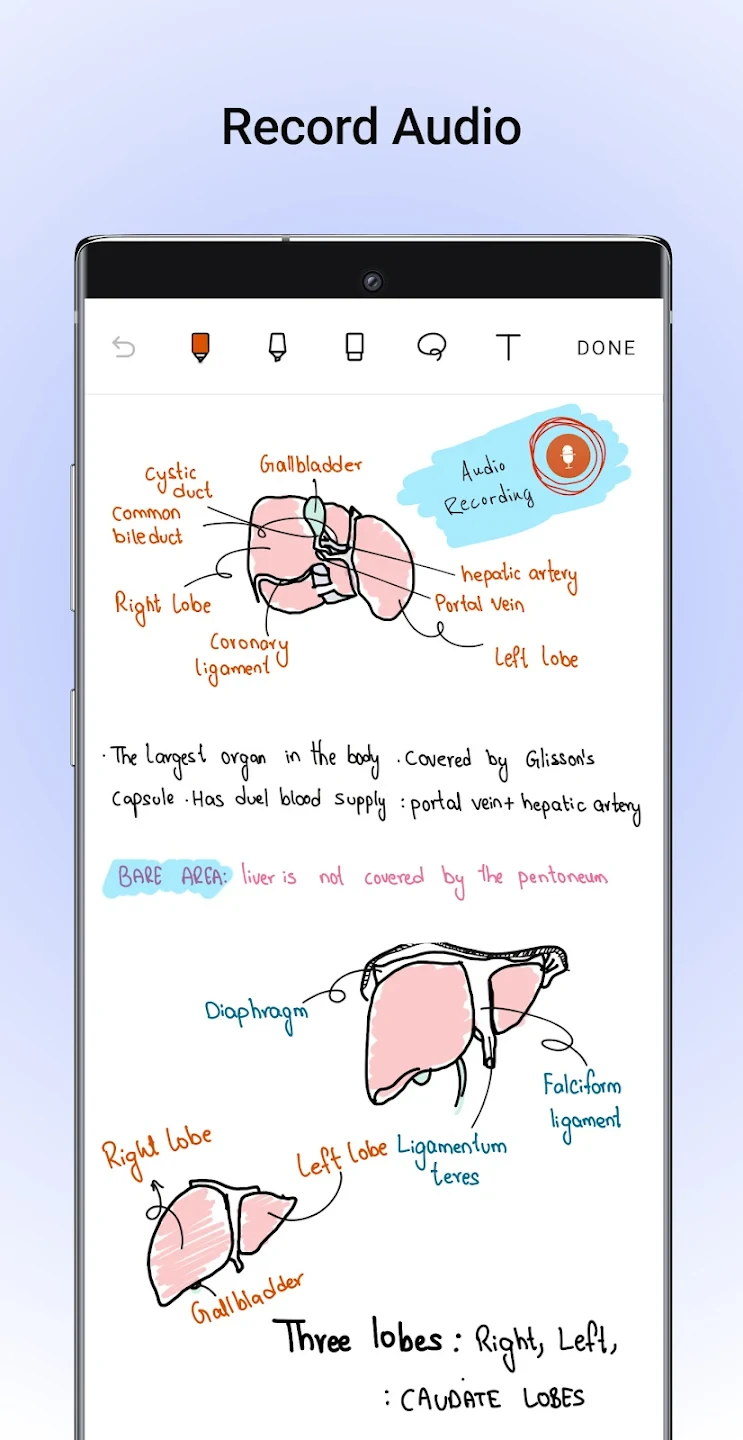 Record Audio
T DONE
Audio
Recording
Gallbladder
Cystic
duct
Common
bile duct
hepatic artery
Portal vein
Right lobe
Coronary
ligament
Left lobe
· The largest organ in the body · Covered by Glisson's
Capsule · Has duel blood supply : portal vein + hepatic artery
BARE AREA: liver is not covered by the pentoneum
Diaphragm
Falciform
ligament
Ligamentum
teres
Right lobe
Left lobe
Gallbladder
Three lobes : Right, Left,
: CAUDATE LOBES